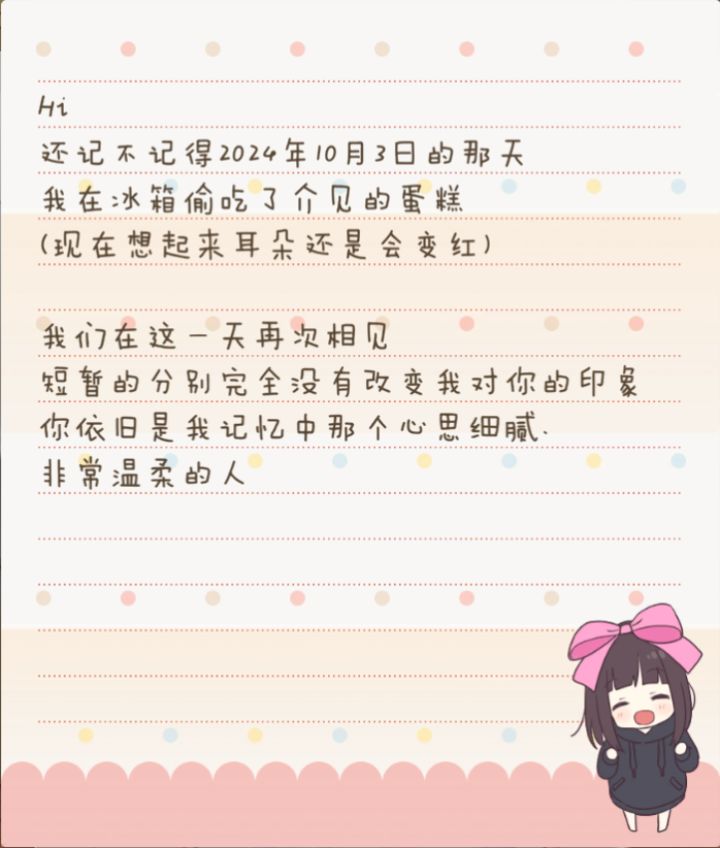 Hi
还记不记得2024年10月3日的那天
我在冰箱偷吃了介见的蛋糕
(现在想起来耳朵还是会变红)
我们在这一天再次相见
短暂的分别完全没有改变我对你的印象
你依旧是我记忆中那个心思细腻.
非常温柔的人